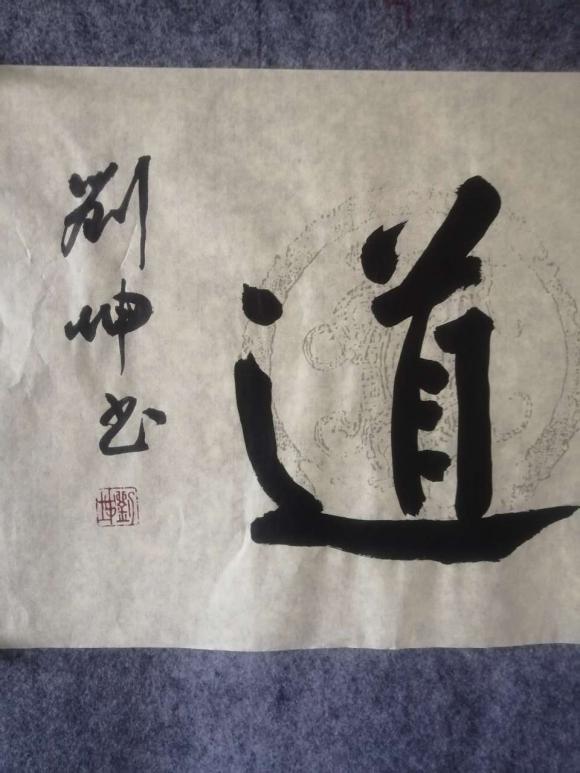 道
劉坤书
劉坤